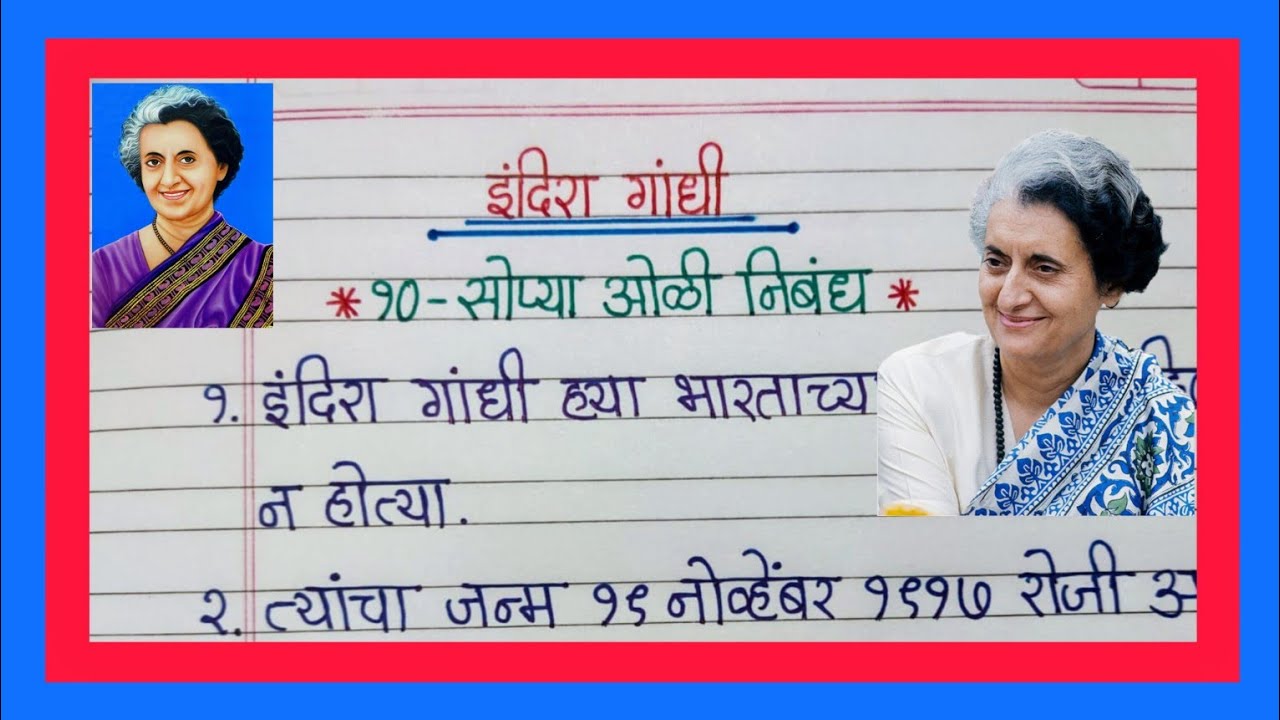 इंदिरा गांधी
*१०-सोप्या ओळी निबंध *
१. इंदिरा गांधी ह्या भारताच्या
न होत्या.
२. त्यांचा जन्म १९ नोव्हेंबर १९१७ रोजी